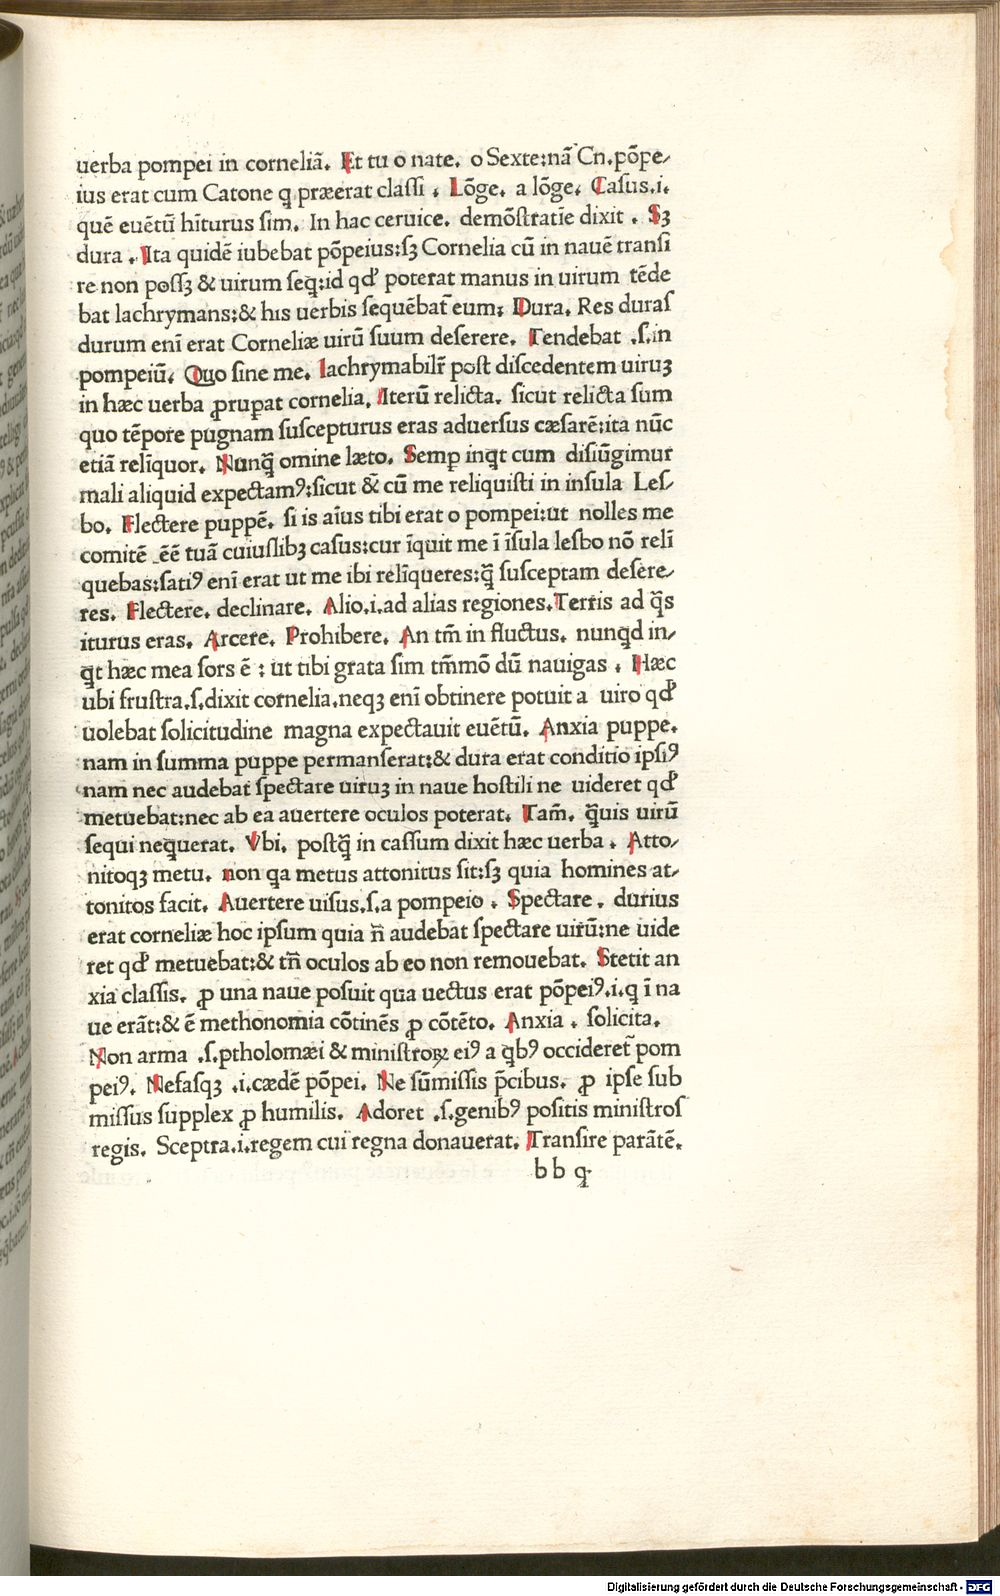 uerba pompei in corneliā. Et tu o nate. o Sexte:nā Cn.pōpe/
ius erat cum Catone q præerat claſſi . Lōge. a lōge. Caſus.i.
quē euētū hīturus ſim. In hac ceruice. demōſtratīe dixit . Sꝫ
dura . Ita quidē iubebat pōpeius:ſꝫ Cornelia cū in nauē tranſi
re non poſſꝫ & uirum ſeq̄:id qđ poterat manus in uirum tēde
bat lachrymans:& his uerbis ſequēbat̄ eum: Dura. Res duraſ
durum enī erat Corneliæ uirū ſuum deſerere. Tendebat .ſ.in
pompeiū. Quo ſine me. lachrymabilr̄ poſt diſcedentem uiruꝫ
in hæc uerba ꝓrupat cornelia. Iterū relicta. ſicut relicta ſum
quo tēpore pugnam ſuſcepturus eras aduerſus cæſarē:ita nūc
etiā relīquor. Nunq̄ omine læto. Semꝑ inqt cum diſiūgimur
mali aliquid expectamꝰ:ſicut & cū me reliquiſti in inſula Leſ/
bo. Flectere puppē. ſi is aīus tibi erat o pompei:ut nolles me
comitē ēē tuā cuiuſlibꝫ caſus:cur īquit me ī īſula lesbo nō relī
quebas:ſatiꝰ enī erat ut me ibi relīqueres:q̄ ſuſceptam deſere/
res. Flectere. declinare. Alio.i.ad alias regiones.Terris ad q̄s
iturus eras. Arcere. Prohibere. An tm̄ in fluctus. nunqd in/
qt hæc mea ſors ē : ut tibi grata ſim tm̄mō dū nauigas . Hæc
ubi fruſtra.ſ.dixit cornelia.neqꝫ enī obtinere potuit a uiro qđ
uolebat ſolicitudine magna expectauit euētū. Anxia puppe.
nam in ſumma puppe permanſerat:& dura erat conditio ipſiꝰ
nam nec audebat ſpectare uiruꝫ in naue hoſtili ne uideret qđ
metuebat:nec ab ea auertere oculos poterat. Tam̄. q̄uis uirū
ſequi neq̄uerat. Vbi. poſtq̄ in caſſum dixit hæc uerba . Atto/
nitoqꝫ metu. non qa metus attonitus ſit:ſꝫ quia homines at/
tonitos facit. Auertere uiſus.ſ.a pompeio . Spectare . durius
erat corneliæ hoc ipſum quia n̄ audebat ſpectare uirū:ne uide
ret qđ metuebat:& tn̄ oculos ab eo non remouebat. Stetit an
xia claſſis. ꝓ una naue poſuit qua uectus erat pōpeiꝰ.i.q ī na
ue erāt:& ē methonomia cōtinēs ꝓ cōtēto. Anxia . ſolicita.
Non arma .ſ.ptholomæi & miniſtroꝝ eiꝰ a qbꝰ occideret̄ pom
peiꝰ. Nefaſqꝫ .i.cædē pōpei. Ne ſūmiſſis p̄cibus. ꝓ ipſe ſub
miſſus ſupplex ꝓ humilis. Adoret .ſ.genibꝰ poſitis miniſtroſ
regis. Sceptra.i.regem cui regna donauerat. Tranſire parātē.
b b q
Digitalisierung gefördert durch die Deutsche Forschungsgemeinschaft - DFG